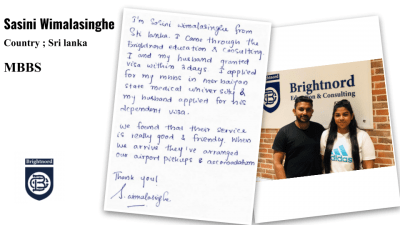 Sasini Wimalasinghe
Country ; Sri lanka
MBBS
Brightnord
I'm Sasini wimalasinghe from
Sri lanka. I came through the
Brightnord education & consulting.
I and my husband granted
visa within 3 days. I applied
for my mbbs in azerbaijan
state medical university &
my husband applied for his
dependent visa.
we found that their service
is really good & friendly. When
we arrive they've arranged
our airport pickups & accomodation
Thank you!
S. wimalasinghe.
Brightnord
Education & Consulting
adidas